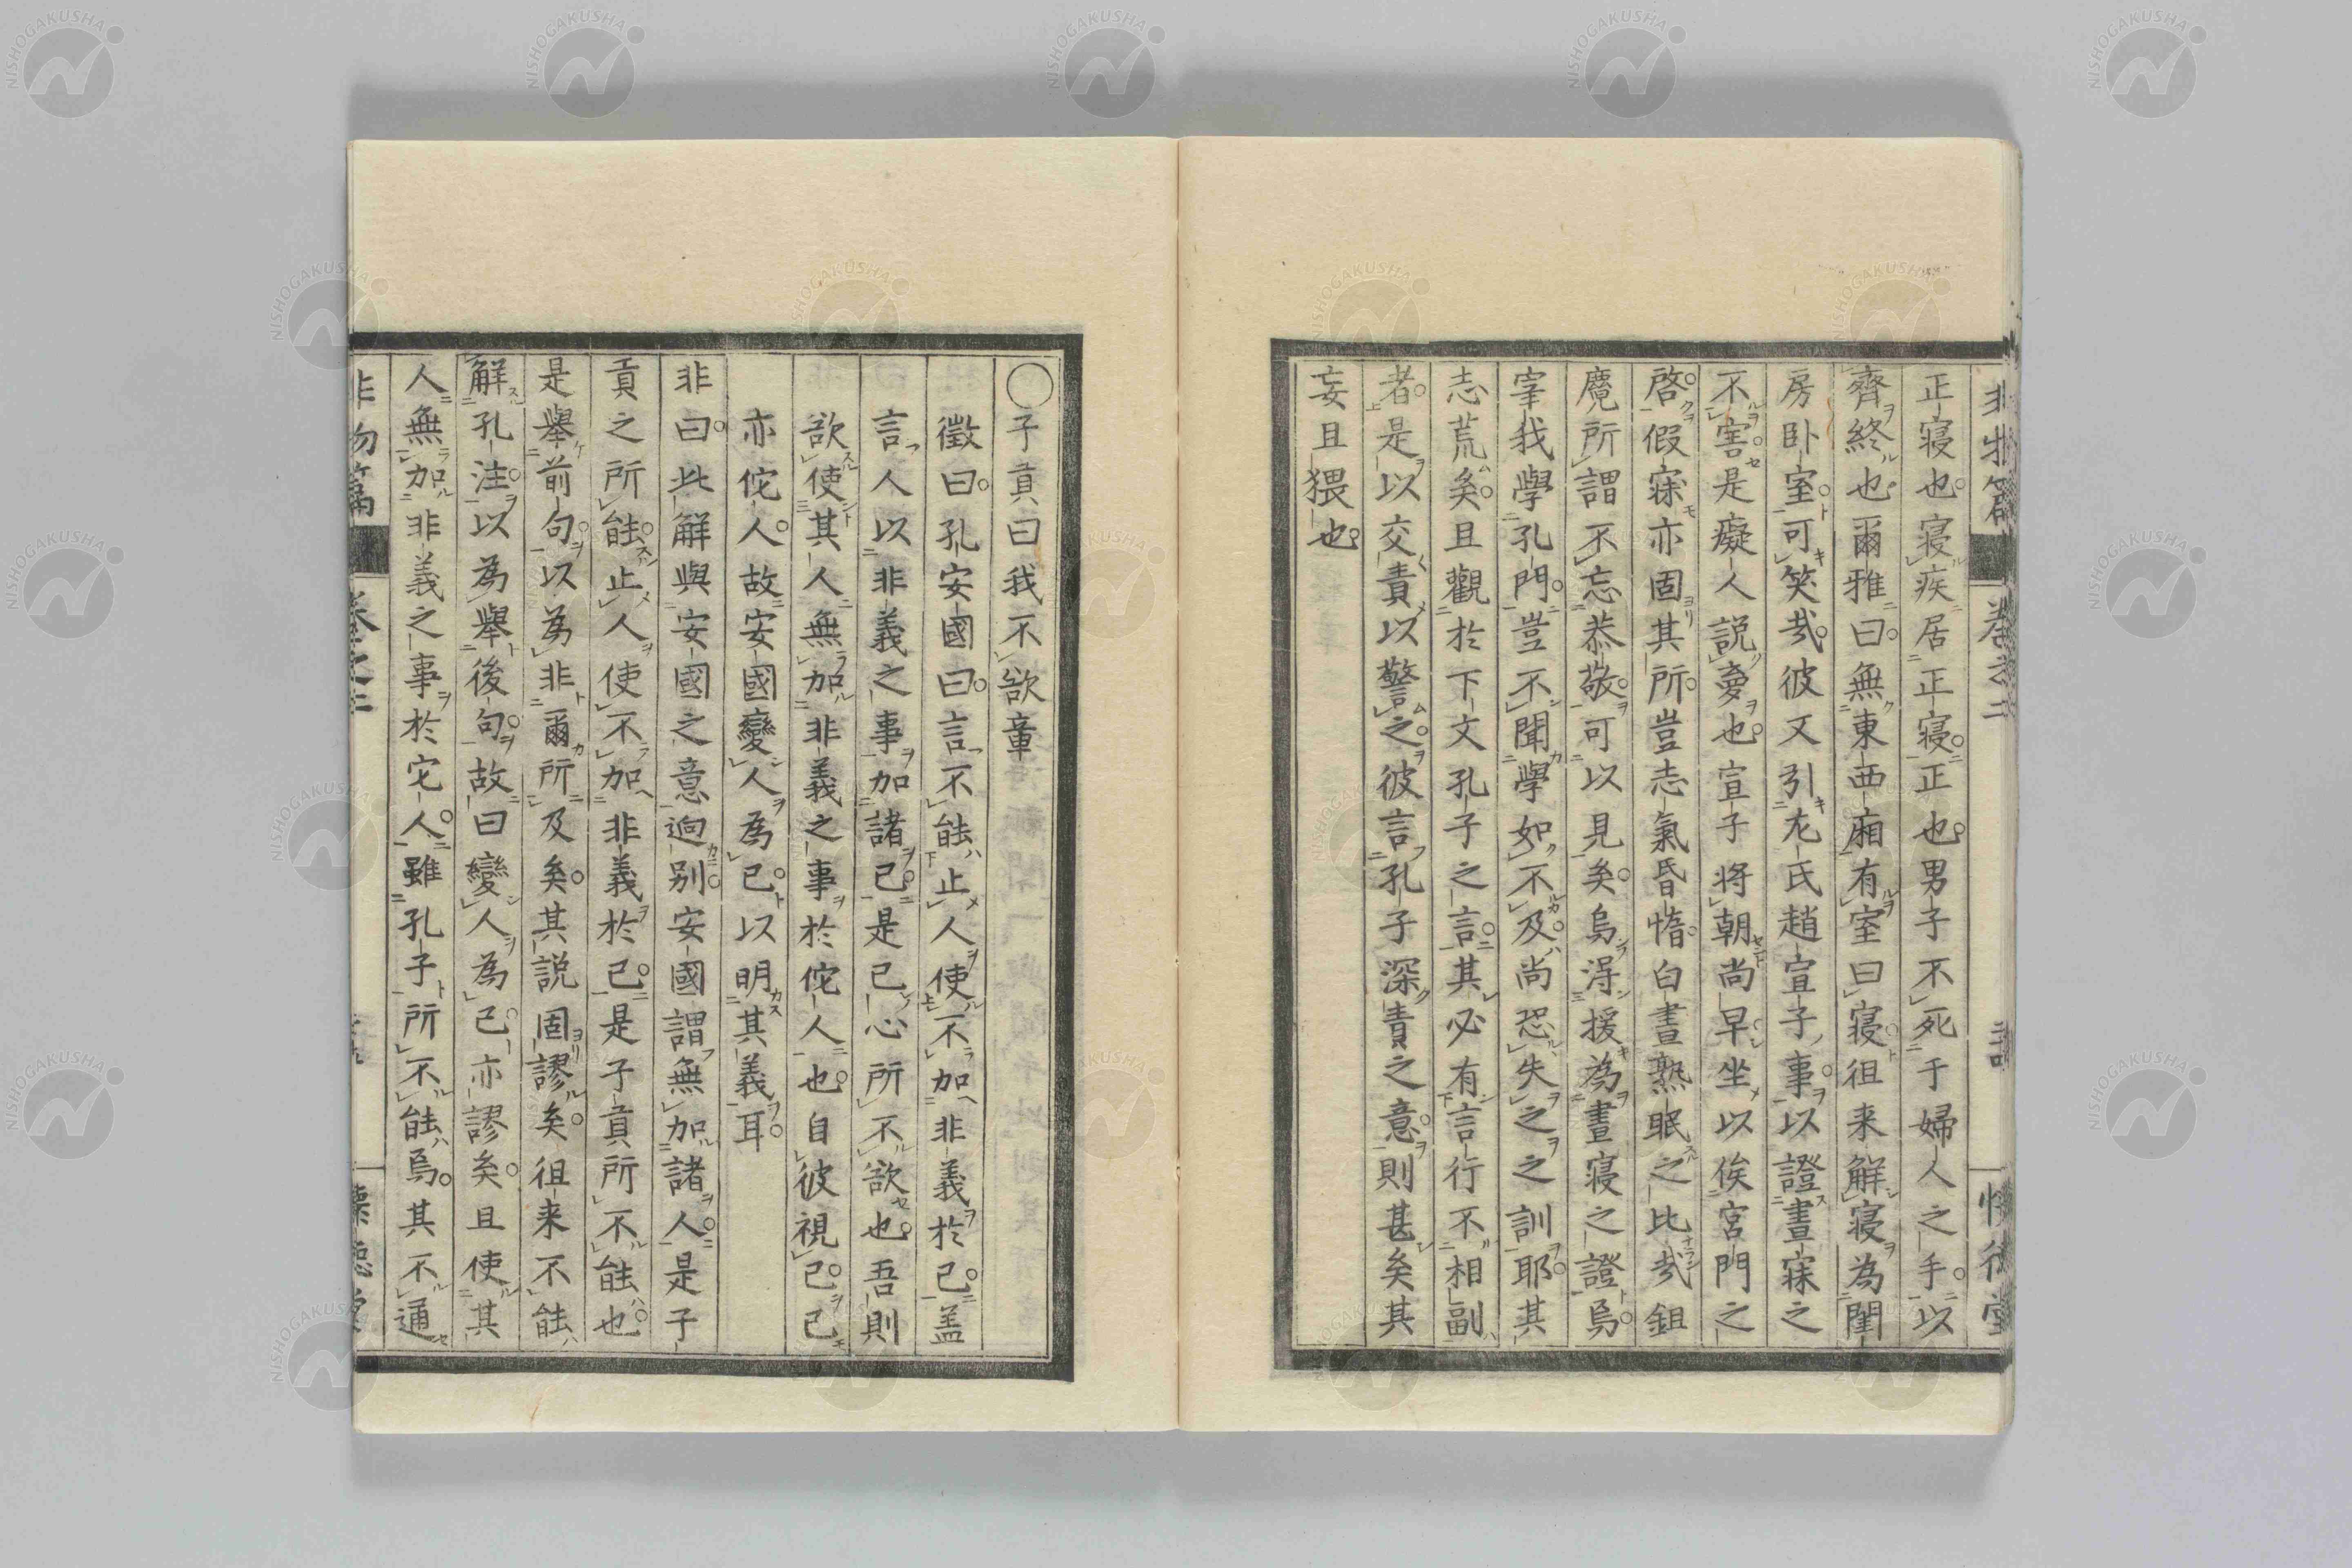 正寢也寢疾居正寢正也男子不死于婦人之手以
齊終也爾雅曰無東西廂有室曰寢徂来解寢為閨
房臥室可笑哉彼又引左氏趙宣子事以證晝寐之
不害是癡人說夢也宣子将朝尚早坐以俟宮門之
啓假寐亦固其所豈志氣昏惰白晝熟眠之比哉鉏
麑所謂不忘恭敬可以見矣烏得援為晝寢之證烏
宰我學孔門豈不聞學如不及尚恐失之之訓耶其
志荒矣且觀於下文孔子之言其必有言行不相副
者是以交責以警之彼言孔子深責之意則甚矣其
妄且猥也
非物篇
卷之二
懷德堂
○子貢曰我不欲章
徵曰孔安國曰言不能止人使不加非義於己盖
言人以非義之事加諸己是己心所不欲也吾則
欲使其人無加非義之事於佗人也自彼視己己
亦佗人故安國變人為己以明其義耳
非曰此解與安國之意迥別安國謂無加諸人是子
貢之所能止人使不加非義於己是子貢所不能也
是舉前句以為非爾所及矣其説固謬矣徂来不能
解孔注以為舉後句故曰變人為己亦謬矣且使其
人無加非義之事於它人雖孔子所不能烏其不通
非物篇
卷之二
懷德堂
NISHOGAKUSHA